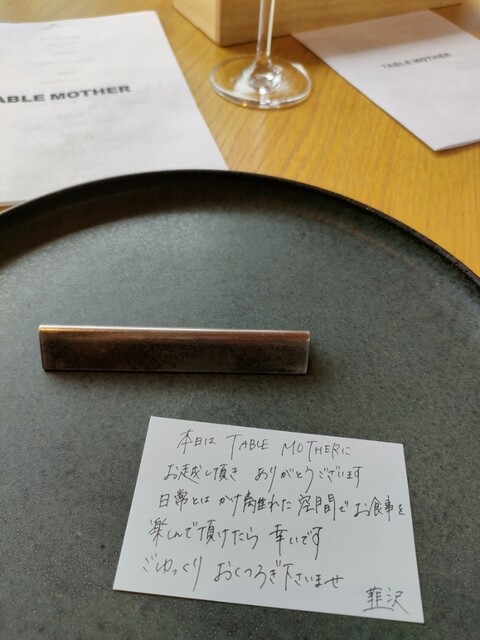 ABLE MOTHER
TABLE MOTHER
本日は TABLE MOTHERに
お越し頂き ありがとうございます
日常とは かけ離れた 空間で お食事を
楽しんで頂けたら 幸いです
ごゆっくり おくつろぎ下さいませ
韮沢